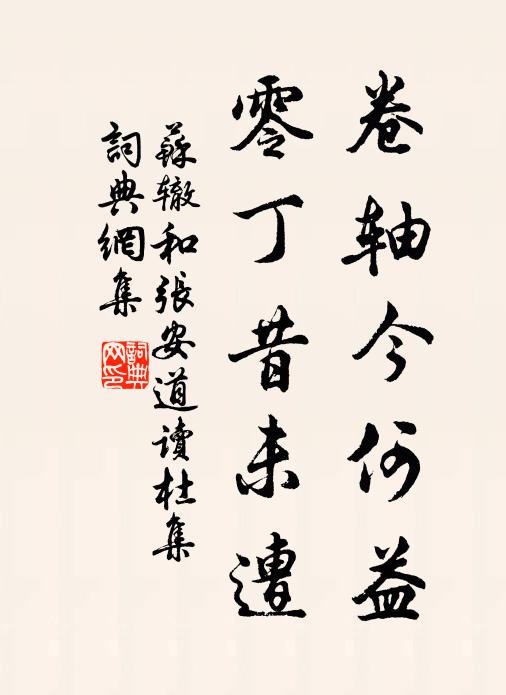 卷轴今何益
零丁昔未遭
蘇辙和張安道讀杜集
詞典網集
詞典網印